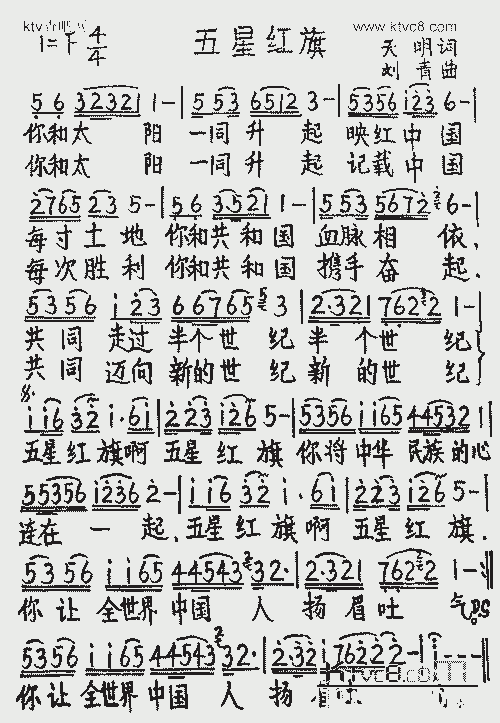 www.ktvc8.com
1=F 4/4 五星红旗
天明词
刘青曲
5 6 3 2 3 2 1 1 - | 5 5 3 6 5 1 2 3 - | 5 3 5 6 i 2 3 6 - |
你和太 阳 一同升 起 映红中 国
你和太 阳 一同升 起 记载中 国
2 7 6 5 2 3 5 - | 5 6 3 · 5 2 1 1 - | 5 5 3 5 6 7 2 6 - |
每寸土 地 你和共和国 血脉相 依,
每次胜 利 你和共和国 携手奋 起.
5 3 5 6 i 2 3 6 6 7 6 5 3 | 2 · 3 2 1 7 6 2 2 1 - |
共同 走过 半个世 纪 半 个世 纪
共同 迈向 新的世 纪 新 的世 纪
i i 6 3 2 i · 6 i | 2 2 3 i 2 6 5 - | 5 3 5 6 i i 6 5 4 4 5 3 2 1 |
五星 红 旗啊 五星 红 旗 你将 中华 民族的心
5 5 3 5 6 i 2 3 6 2 - | i i 6 3 2 i · 6 i | 2 2 3 i 2 6 5 - |
连在 一 起.五星 红 旗啊 五星 红 旗.
5 3 5 6 i i 6 5 4 4 5 4 3 3 2 · | 2 · 3 2 1 7 6 2 2 1 - :||
你 让 全世界 中国 人 扬 眉吐 气 D.S
5 3 5 6 i i 6 5 4 4 5 4 3 3 2 · | 2 · 3 2 i 7 6 2 2 2 - | i - - - ||
你让 全世界 中国 人 扬
ktvc8.com